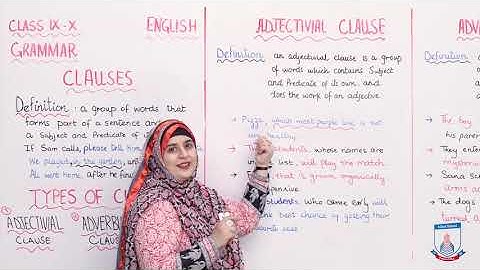 CLASS IX-X
ENGLISH
GRAMMAR
CLAUSES
Definition: a group of words that
forms part of a sentence and
a Subject and Predicate of
If Sam calls, please tell him
We played in the garden, until
All went home, after he fou
TYPES OF
ADJECTIVIAL
CLAUSE
ADVERB
CLAUSE
ADJECTIVIAL CLAUSE
Definition: an adjectivial clause is a group
of words which contains Subject
and Predicate of its own and
does the work of an adjective.
→ Pizza, which most people love, is not
very healthy.
→ The students whose names are
in list, will play the match.
that is grown organically
expensive
students, who came early will
best chance of getting their
ADV
Definition
→ The boy
his paren
→ They ente
→ Sana sc
arms a
→ The dogs
turned a